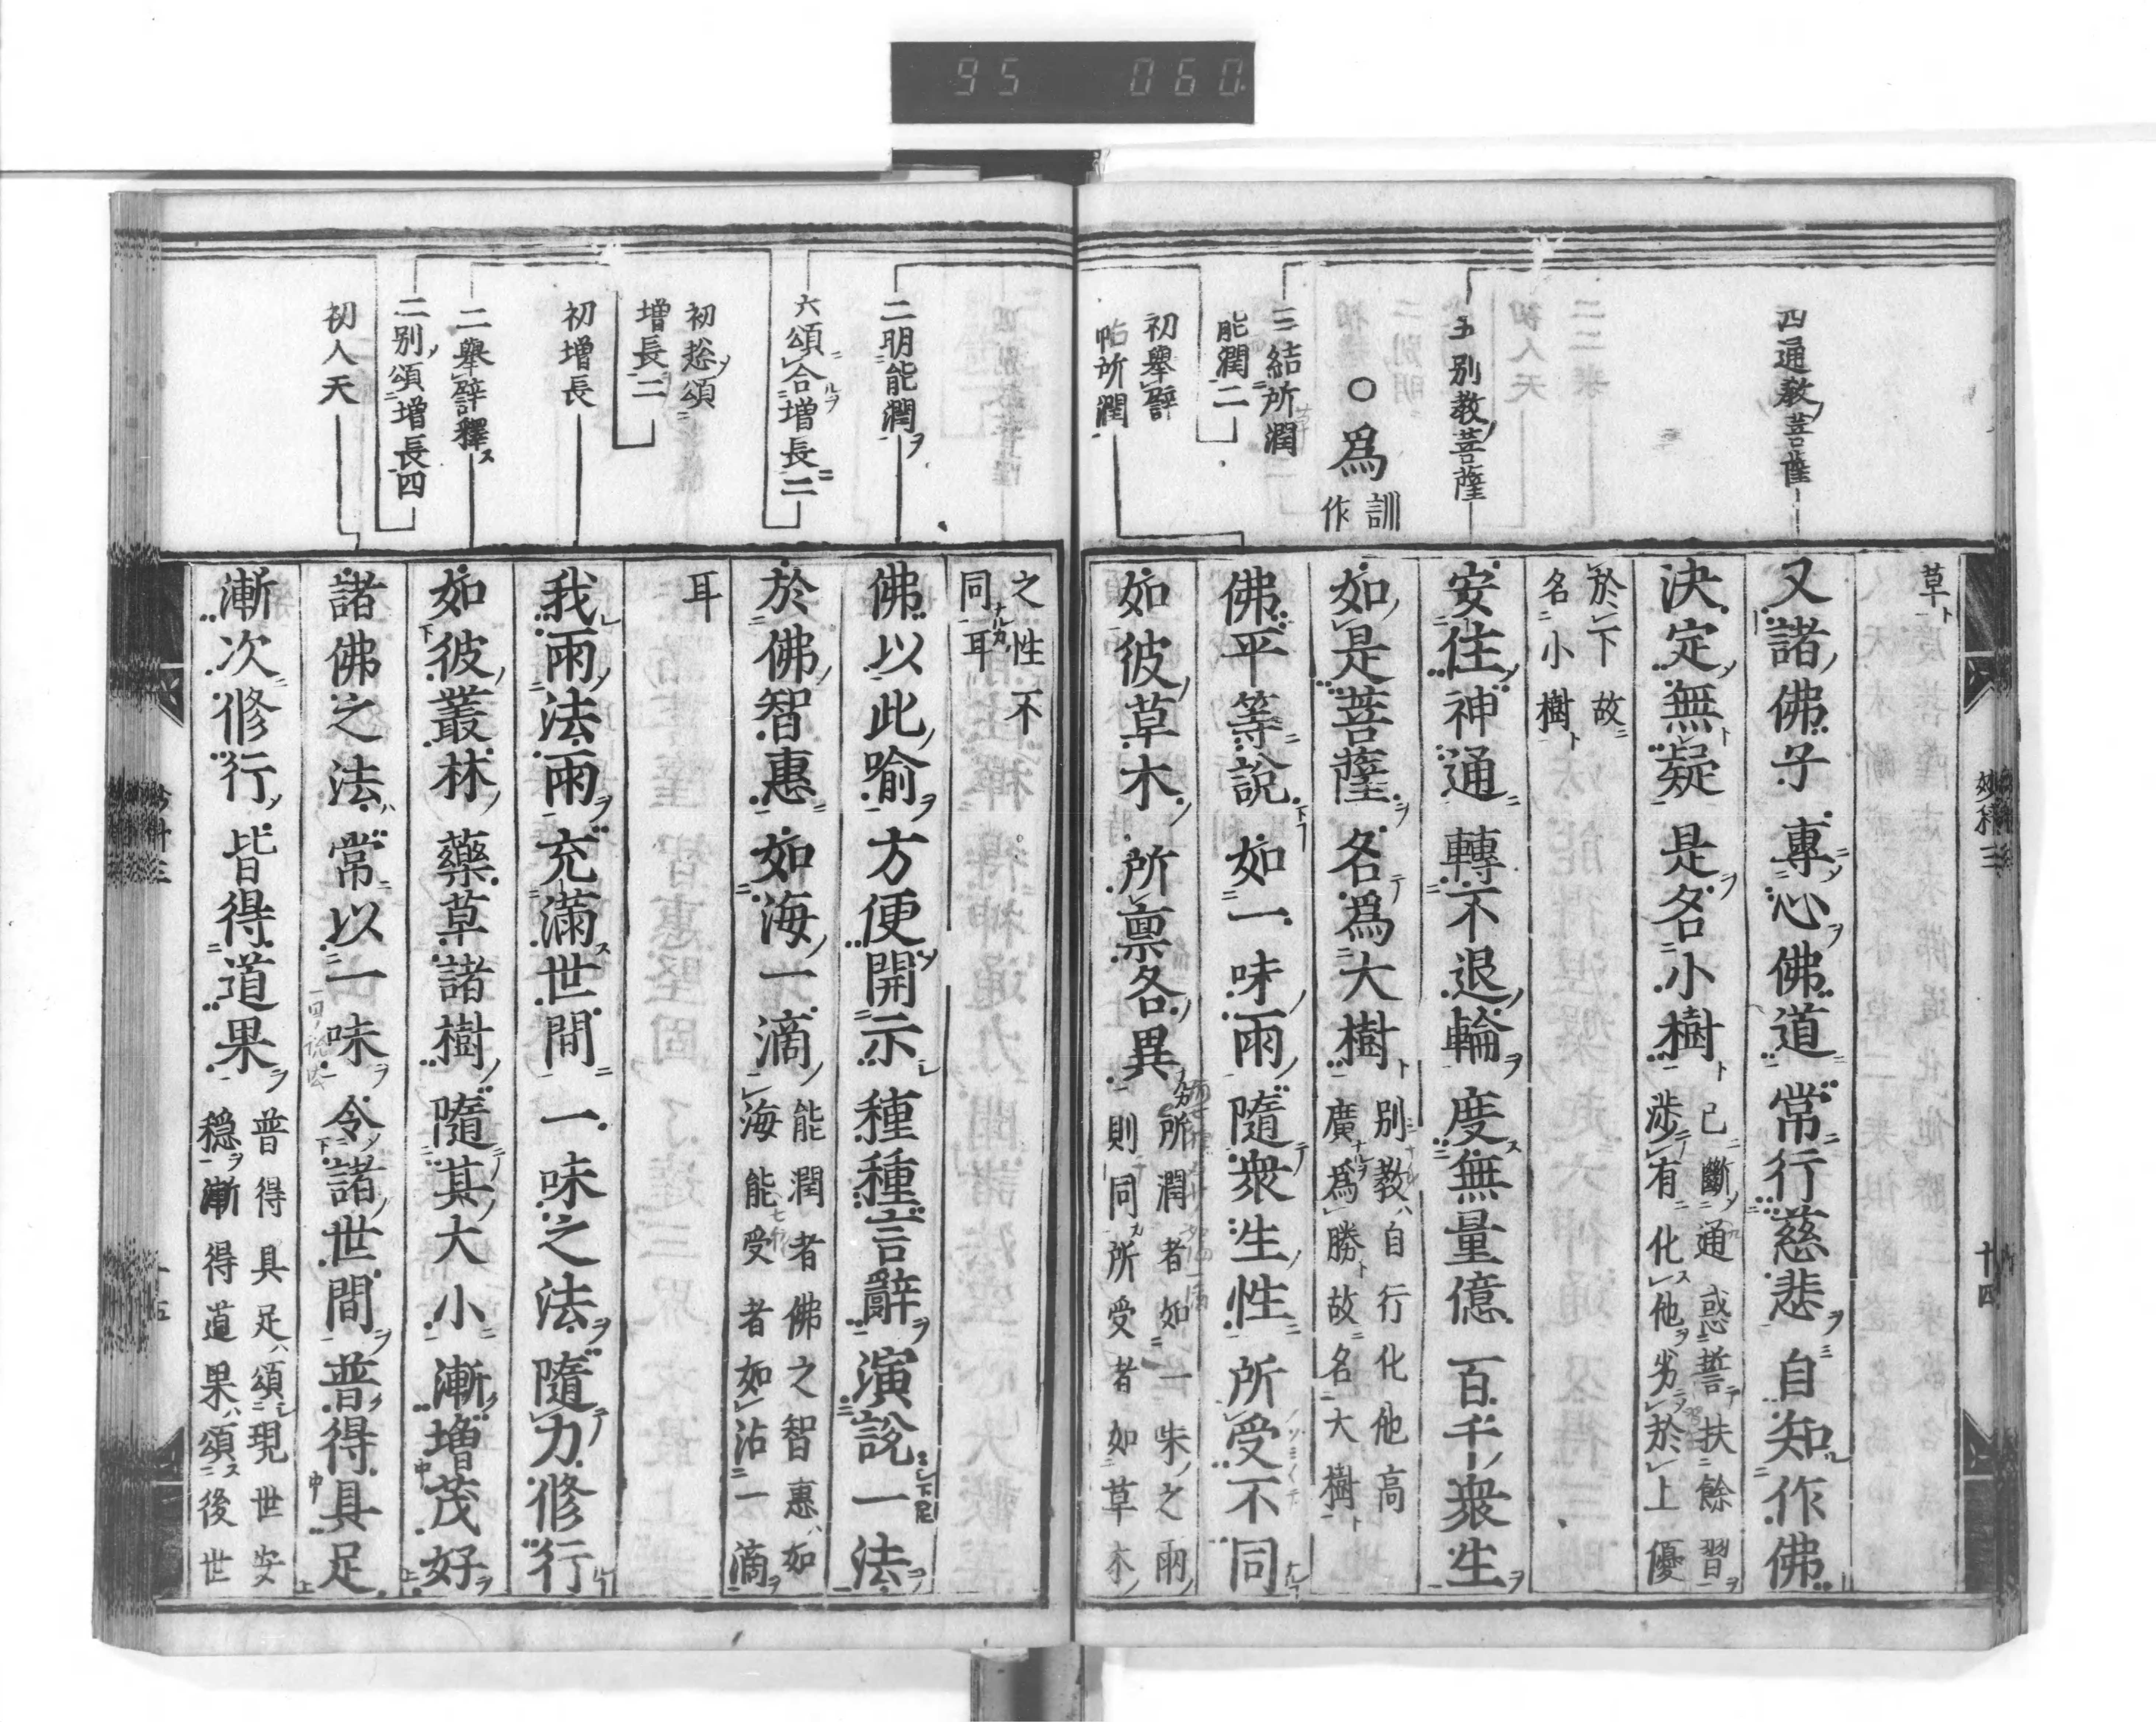 95 060
四通教菩薩
五別教菩薩
○爲訓作
三結所潤
能潤二
初擧譬
帖所潤
草
又諸佛子專心佛道常行慈悲自知作佛
決定無疑是名小樹已斷通惑誓扶餘習
涉有化他劣於上優
於下故
名小樹
安住神通轉不退輪度無量億百千衆生
如是菩薩名爲大樹別教自行化他高
廣爲勝故名大樹
佛平等說如一味雨隨衆生性所受不同
如彼草木所禀各異所潤者如一味之雨
則同所受者如草木
十四
二明能潤
六頌合增長二
初總頌
增長二
初增長
二擧譬釋
二別頌增長四
初人天
之性不
同耳
佛以此喻方便開示種種言辭演說一法
於佛智惠如海一滴能潤者佛之智惠如
海能受者如沾一滴
耳
我雨法雨充滿世間一味之法隨力修行
如彼叢林藥草諸樹隨其大小漸增茂好
諸佛之法常以一味令諸世間普得具足
漸次修行皆得道果普得具足頌現世安
穩漸得道果頌後世